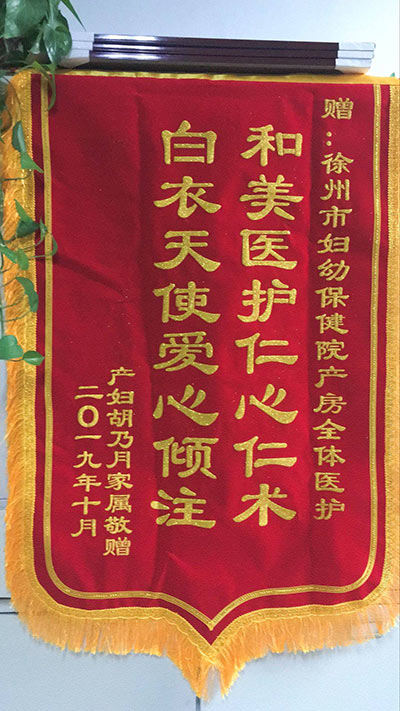 赠：徐州市妇幼保健院产房全体医护
和美医护仁心仁术
白衣天使爱心倾注
产妇胡乃月家属敬赠
二〇一九年十月